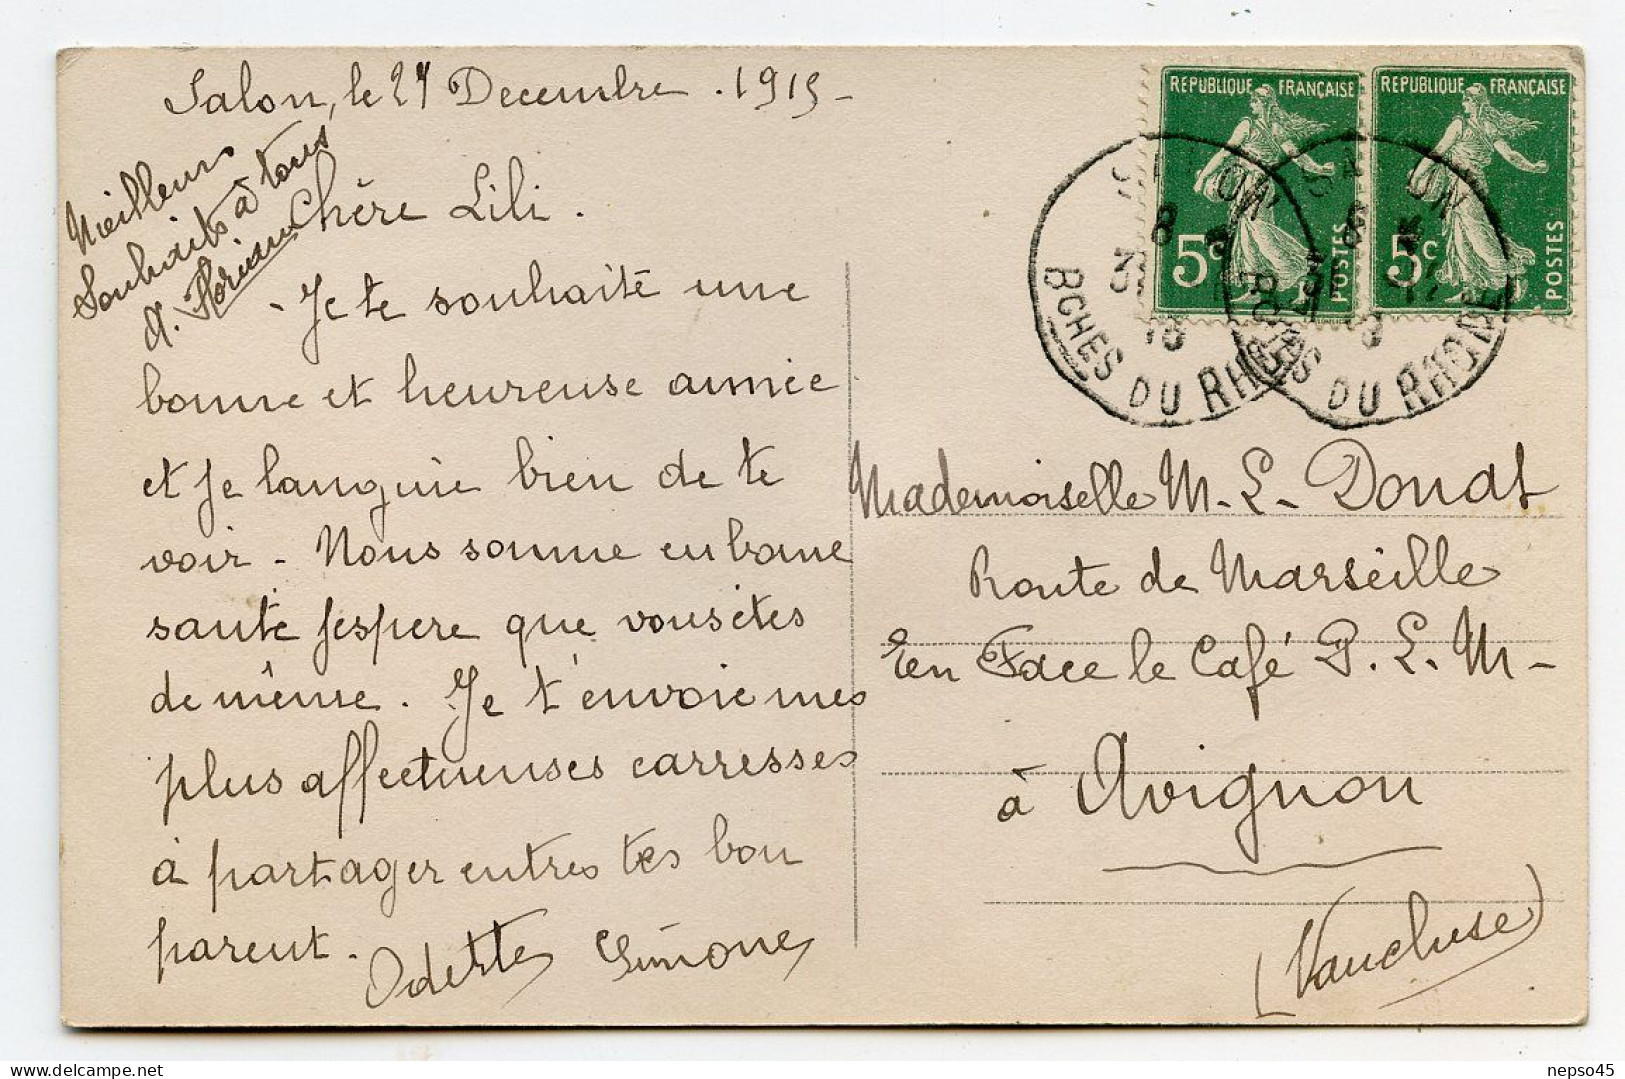 Salon, le 27 Decembre . 1915 -
Meilleurs
Souhaits à tous
Chère Lili .
- Je te souhaite une
bonne et heureuse année
et je languie bien de te
voir - Nous somme en bone
santé jespere que vous êtes
de même . Je t'envoie mes
plus affectueuses carresses
à partager entres tes bon
parent .
Odette Simone
REPUBLIQUE FRANÇAISE
5c
POSTES
REPUBLIQUE FRANÇAISE
5c
POSTES
SALON
BCHES DU RHONE
SALON
BCHES DU RHONE
Mademoiselle M. L. Donat
Route de Marseille
En Face le Café P. L. M -
à Avignon
(Vaucluse)
delcampe.net
nepso45